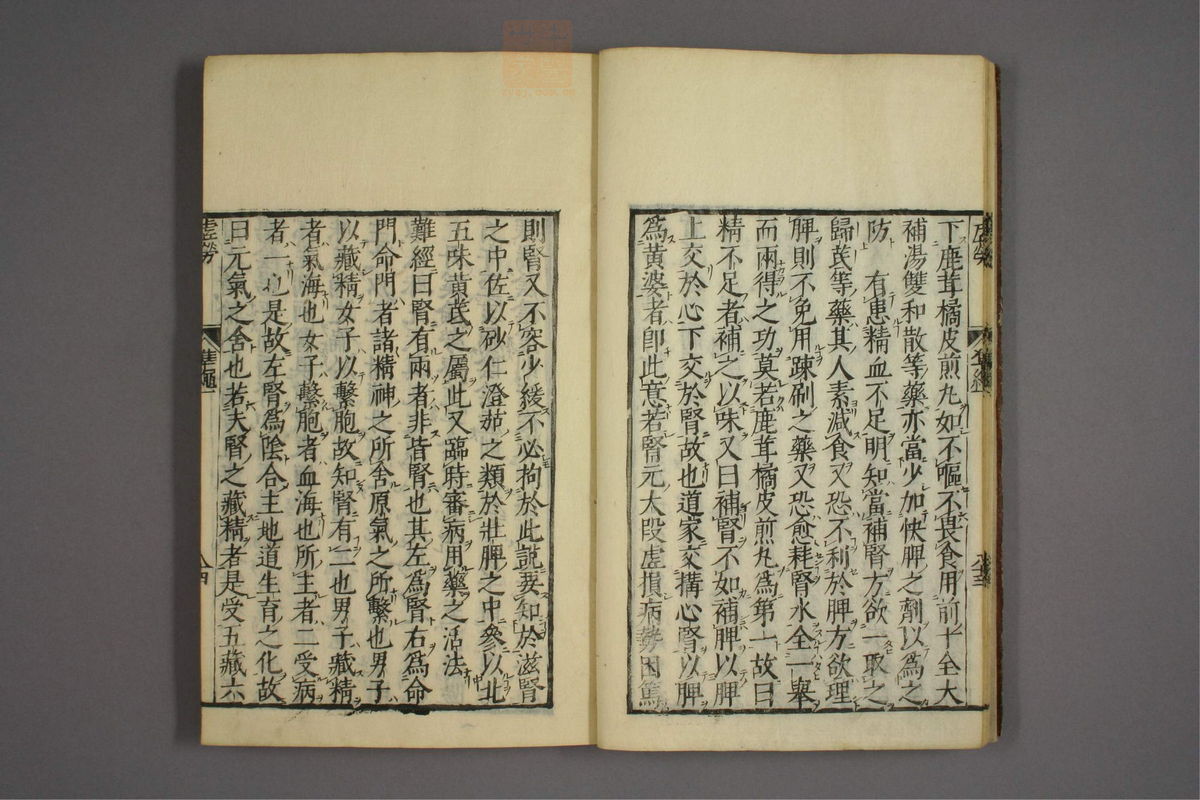 下鹿茸橘皮煎丸如不嘔不畏食用前十全大
補湯雙和散等藥亦當少加快脾之劑以爲之
防 有患精血不足明知當補腎方欲一取之
歸芪等藥其人素減食又恐不利於脾方欲理
脾則不免用踈刷之藥又恐愈耗腎水全一舉
而兩得之功莫若鹿茸橘皮煎丸爲第一故曰
精不足者補之以味又曰補腎不如補脾以脾
上交於心下交於腎故也道家交搆心腎以脾
爲黄婆者即此意若腎元大段虚損病勢困篤
則腎又不容少緩不必拘於此説要知於滋腎
之中佐以砂仁澄茄之類於壯脾之中參以北
五味黄芪之屬此又臨時審病用藥之活法
難經曰腎有兩者非皆腎也其左爲腎右爲命
門命門者諸精神之所舍原氣之所繫也男子
以藏精女子以繫胞故知腎有二也男子藏精
者氣海也女子繫胞者血海也所主者二受病
者一也是故左腎爲陰合主地道生育之化故
曰元氣之舍也若夫腎之藏精者是受五藏六
虚勞
八十四